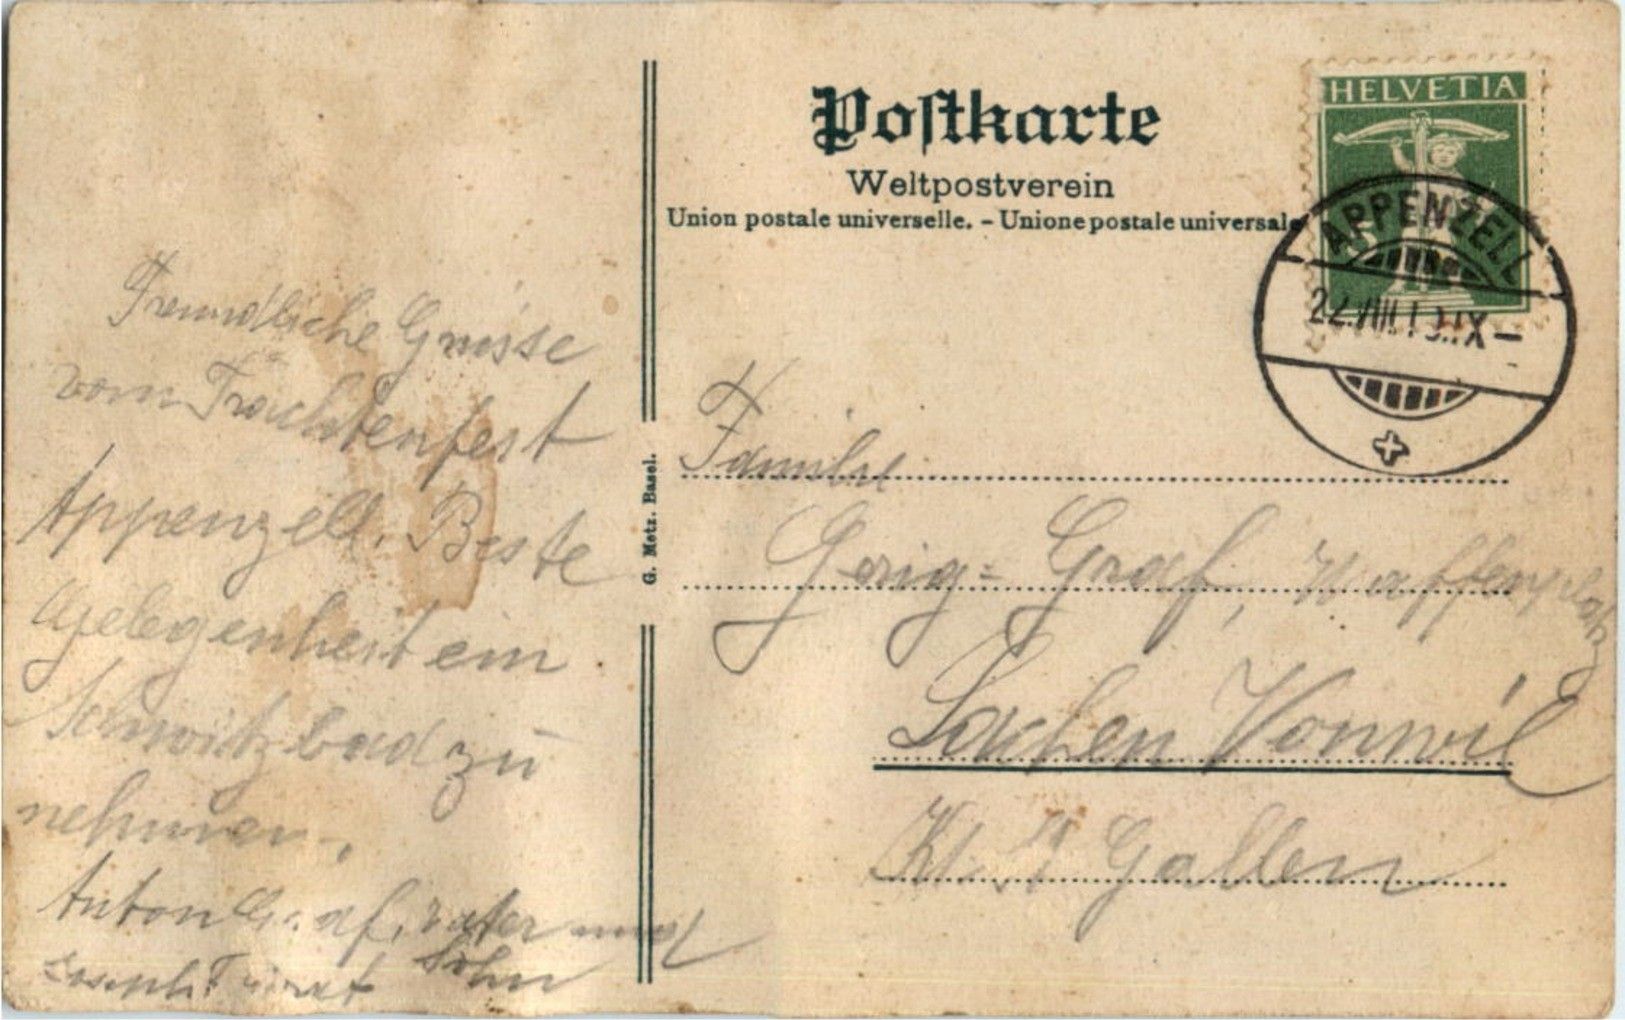 Postkarte
Weltpostverein
Union postale universelle. – Unione postale universale
HELVETIA
APPENZELL
22.VIII.
IX–
G. Metz. Basel.
Freundliche Grüsse
vom Trachtenfest
Appenzell. Beste
Gelegenheit ein
Schwitzbad zu
nehmen.
Anton Graf, vater und
Sohn
Familie
Gerig-Graf, Waffenplatz
Lachen Vonwil
Kt. St Gallen